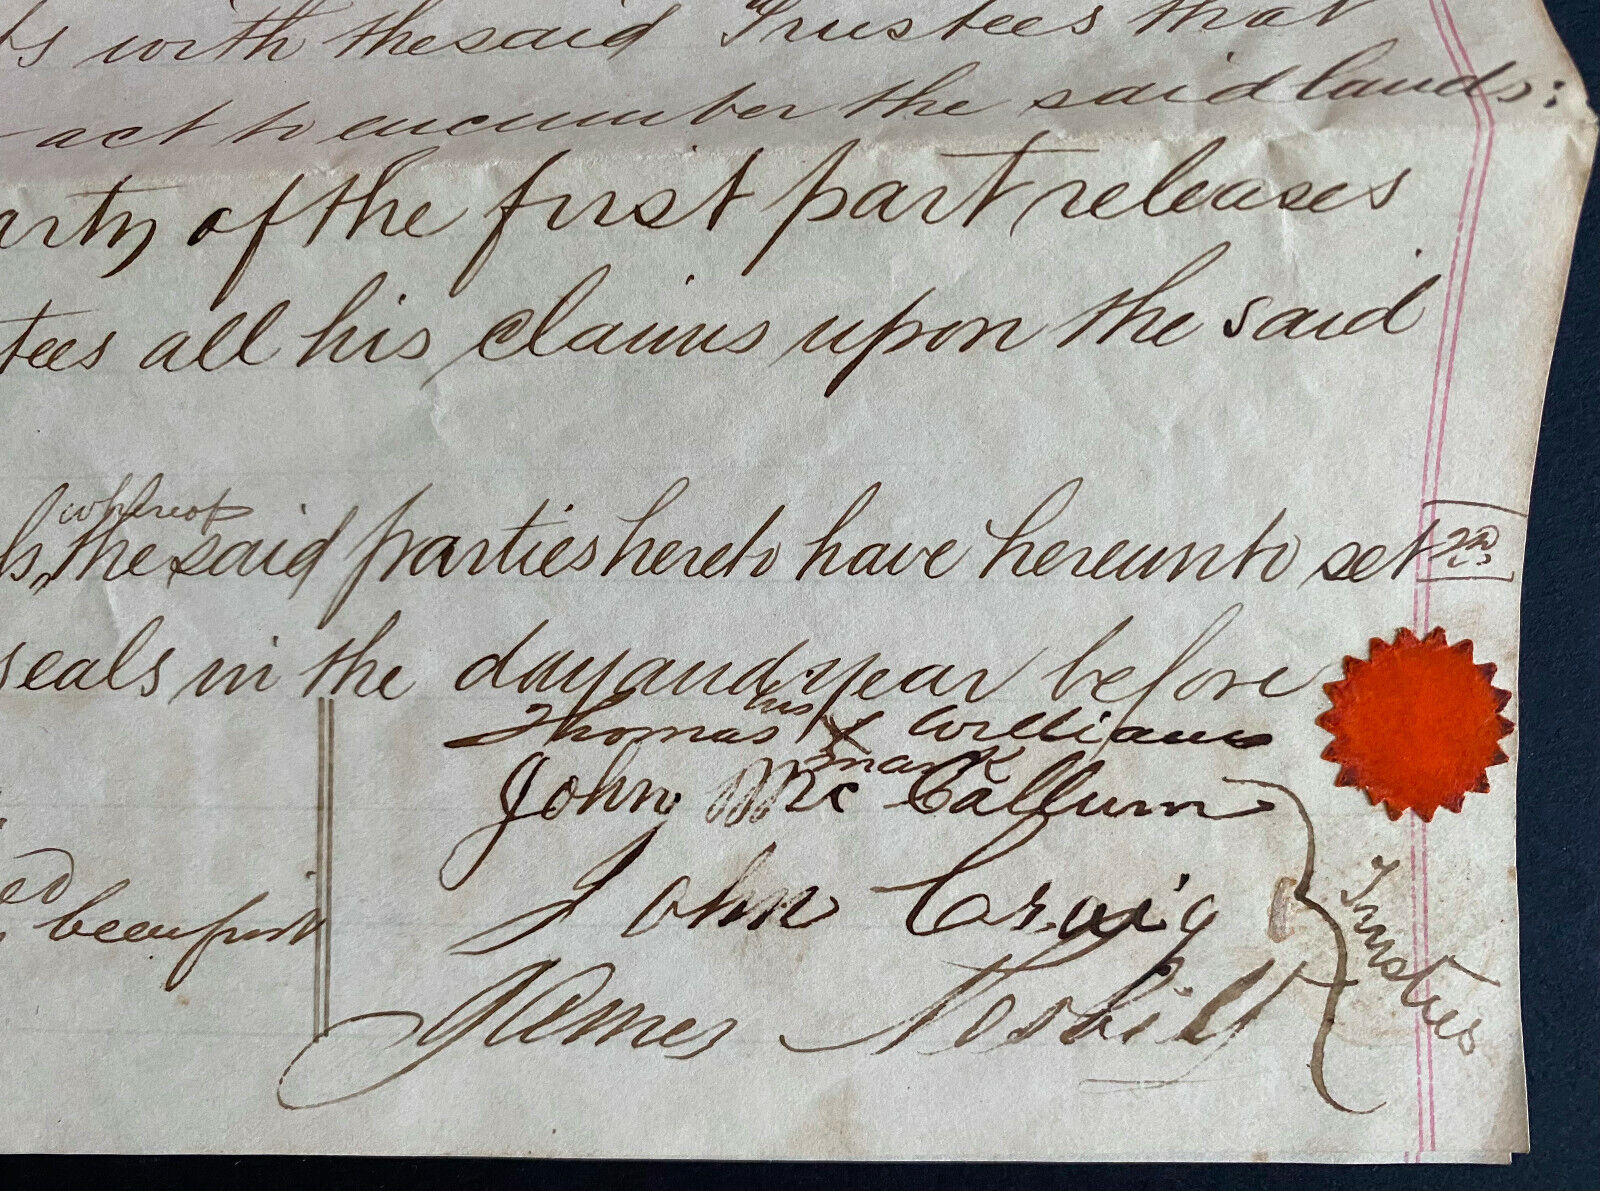 with the said Trustees that
act to encumber the said lands:
arty of the first part releases
tees all his claims upon the said
whereof
the said parties hereto have hereunto set
seals in the day and year before
his
Thomas X Williams
mark
John Mc Callum
John Craig
James Nesbitt
Trustees